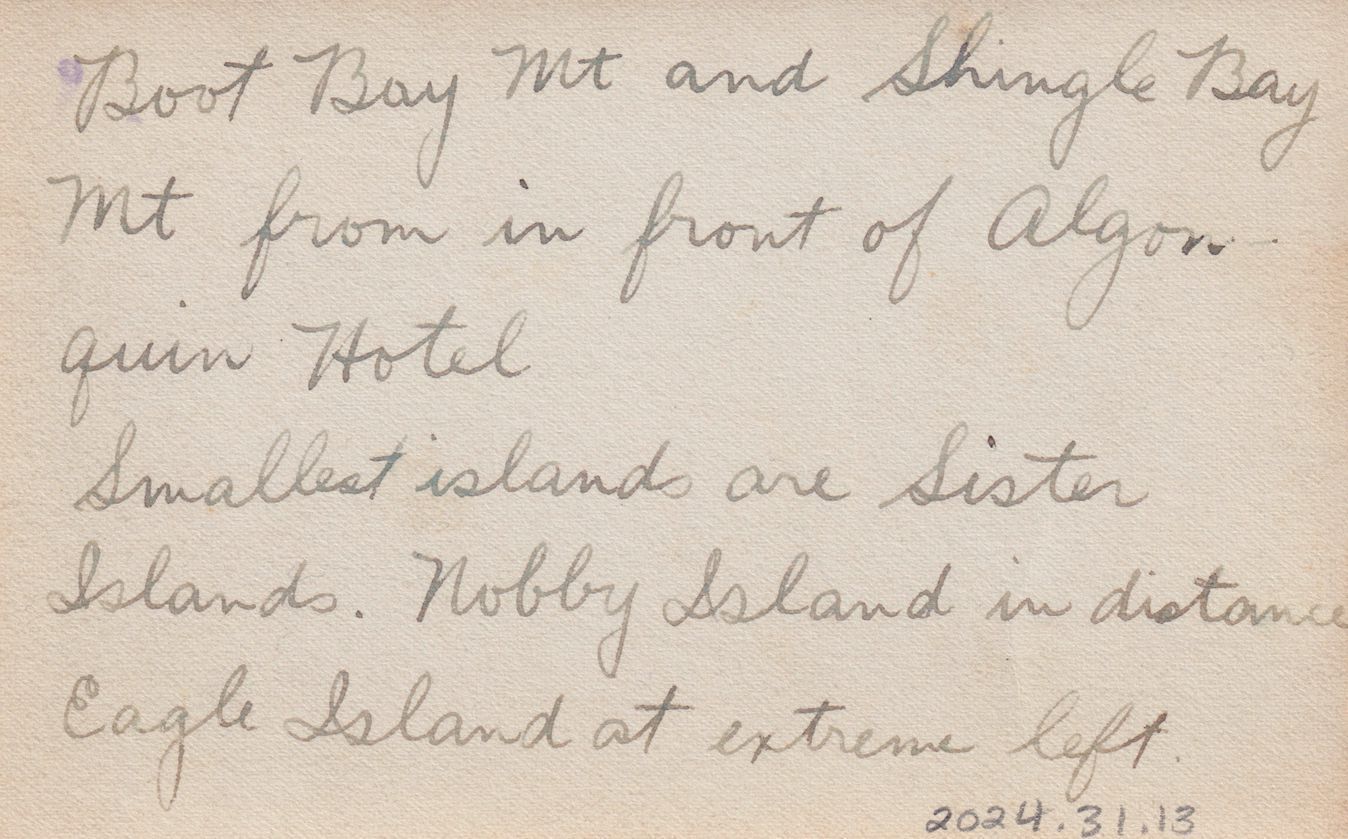 Boot Bay Mt and Shingle Bay
Mt from in front of Algon-
quin Hotel
Smallest islands are Sister
Islands. Nobby Island in distance
Eagle Island at extreme left.
2024.31.13